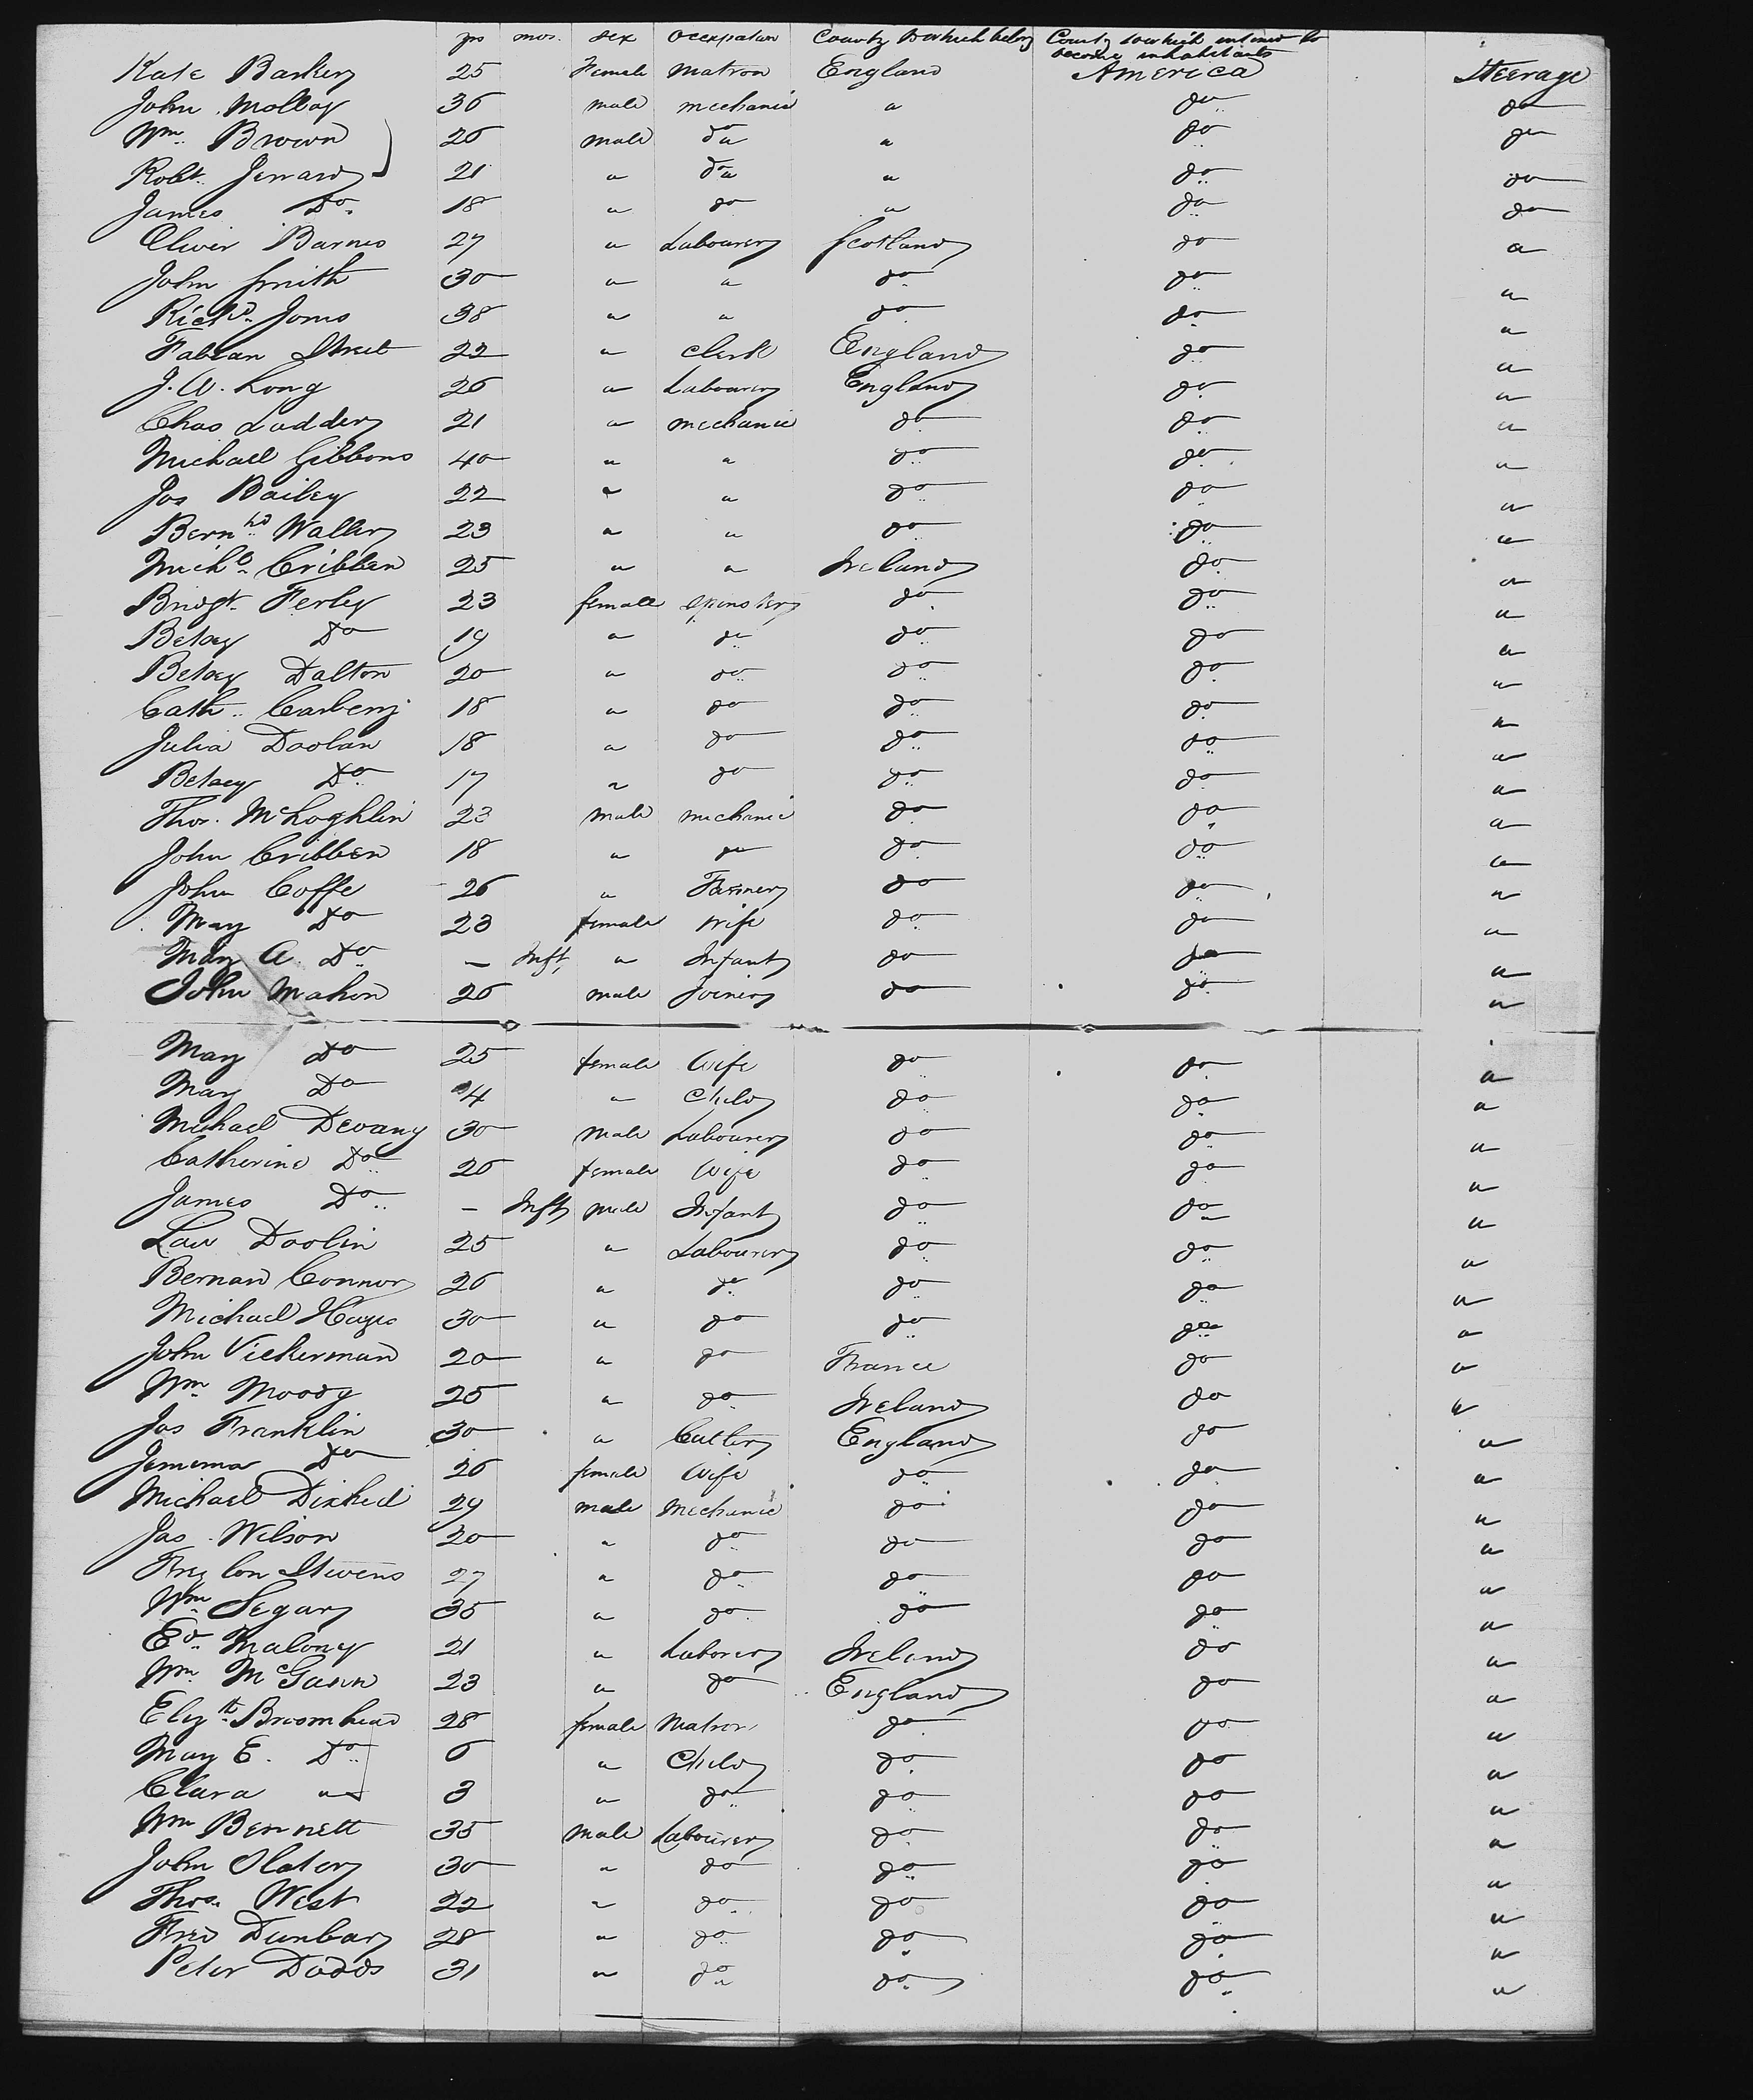 yrs mos. sex occupation County to which belong County to which intend to become inhabitants
Kate Barker 25 Female matron England America Steerage
John Molloy 36 male mechanic " do do
Wm Brown 26 male do " do do
Robt. Jerrard 21 " do " do do
James Do 18 " do " do do
Oliver Barnes 27 " Labourer Scotland do "
John Smith 30 " " do do "
Richd Jones 38 " " do do "
Fabian Street 22 " clerk England do "
J. W. Long 26 " Labourer England do "
Chas Ludder 21 " mechanic do do "
Michael Gibbons 40 " " do do "
Jos Bailey 22 " " do do "
Bernhd Waller 23 " " do do "
Michl Cribben 25 " " Ireland do "
Bridgt Ferley 23 female spinster do do "
Betsey Do 19 " do do do "
Betsey Dalton 20 " do do do "
Cath. Carberry 18 " do do do "
Julia Doolan 18 " do do do "
Betsey Do 17 " do do do "
Thos. McLoghlin 23 male mechanic do do "
John Cribben 18 " do do do "
John Coffe 26 " Farmer do do "
Mary Do 23 female wife do do "
Mary A. Do — Inft, " Infant do do "
John Mahon 26 male Joiner do do "
Mary Do 25 female Wife do do "
Mary Do 4 " child do do "
Michael Devany 30 male Labourer do do "
Catherine Do 26 female Wife do do "
James Do — Inft male Infant do do "
Law Doolin 25 " Labourer do do "
Bernard Connor 26 " do do do "
Michael Hayes 30 " do do do "
John Vickerman 20 " do France do "
Wm Moody 25 " do Ireland do "
Jas Franklin 30 " Cutler England do "
Jemima Do 26 female Wife do do "
Michael 29 male Mechanic do do "
Jas. Wilson 20 " do do do "
Stevens 27 " do do do "
Wm Segar 35 " do do do "
Ed Maloney 21 " Laborer Ireland do "
Wm McGann 23 " do England do "
Elizth Broomhead 28 female Matron do do "
Mary E. Do 6 " Child do do "
Clara " 3 " do do do "
Wm Bennett 35 male Labourer do do "
John Slater 30 " do do do "
Thos. West 22 " do do do "
Fred Dunbar 28 " do do do "
Peter Dodds 31 " do do do "